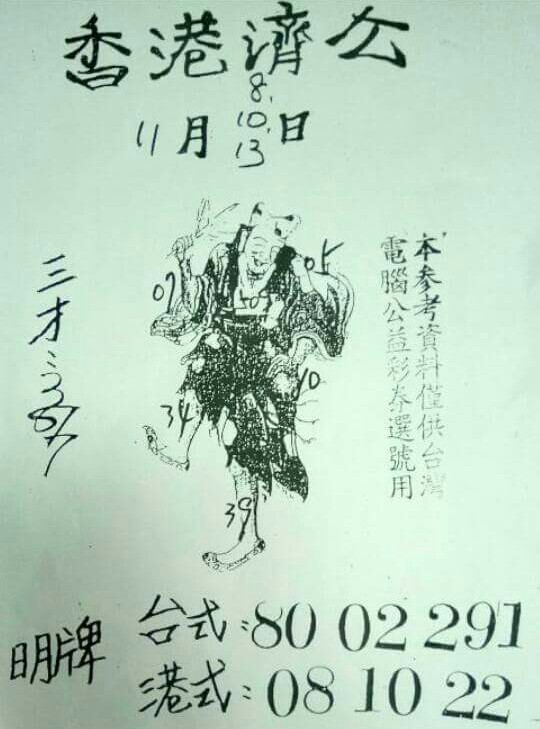 香港濟公
11月 8. 10. 13 日
本參考資料僅供台灣
電腦公益彩券選號用
三才
05
07
40
34
39
明牌
台式:80 02 291
港式:08 10 22